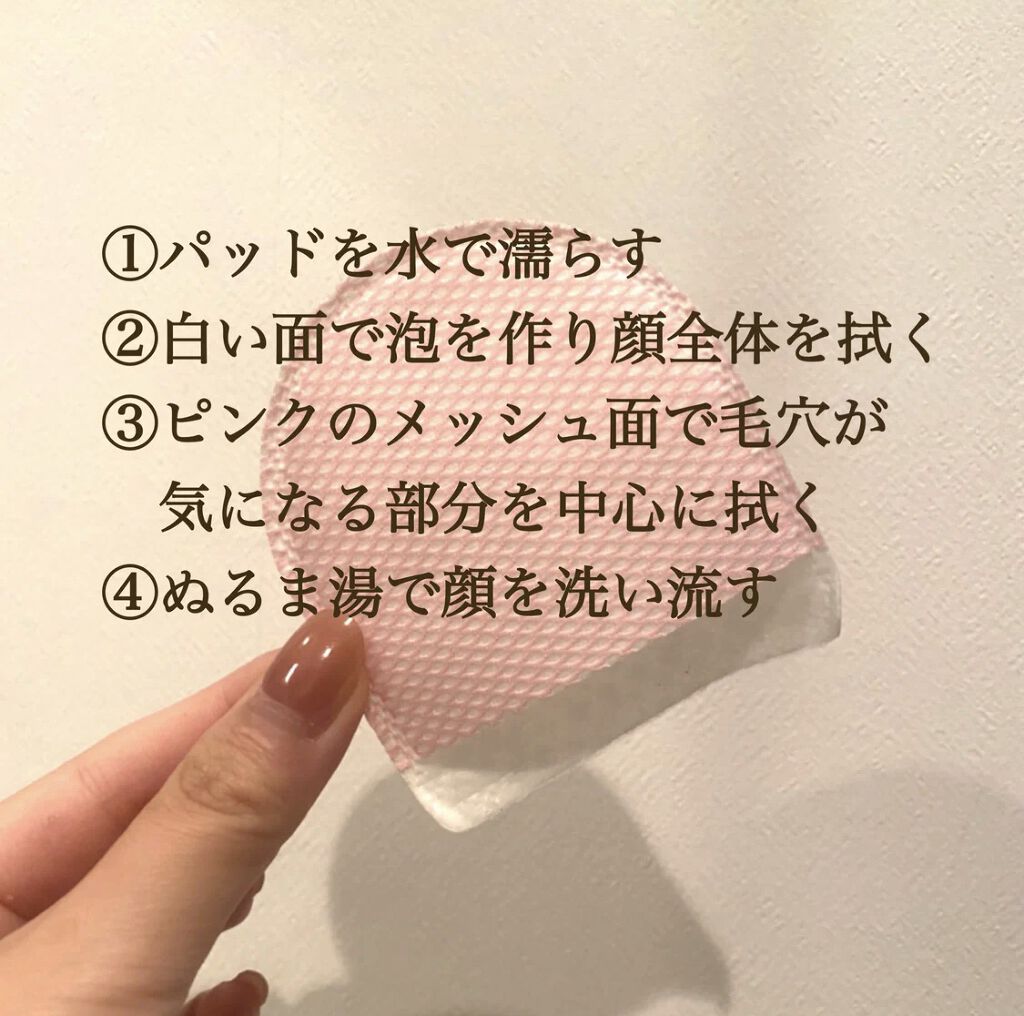 ①パッドを水で濡らす
②白い面で泡を作り顔全体を拭く
③ピンクのメッシュ面で毛穴が
気になる部分を中心に拭く
④ぬるま湯で顔を洗い流す